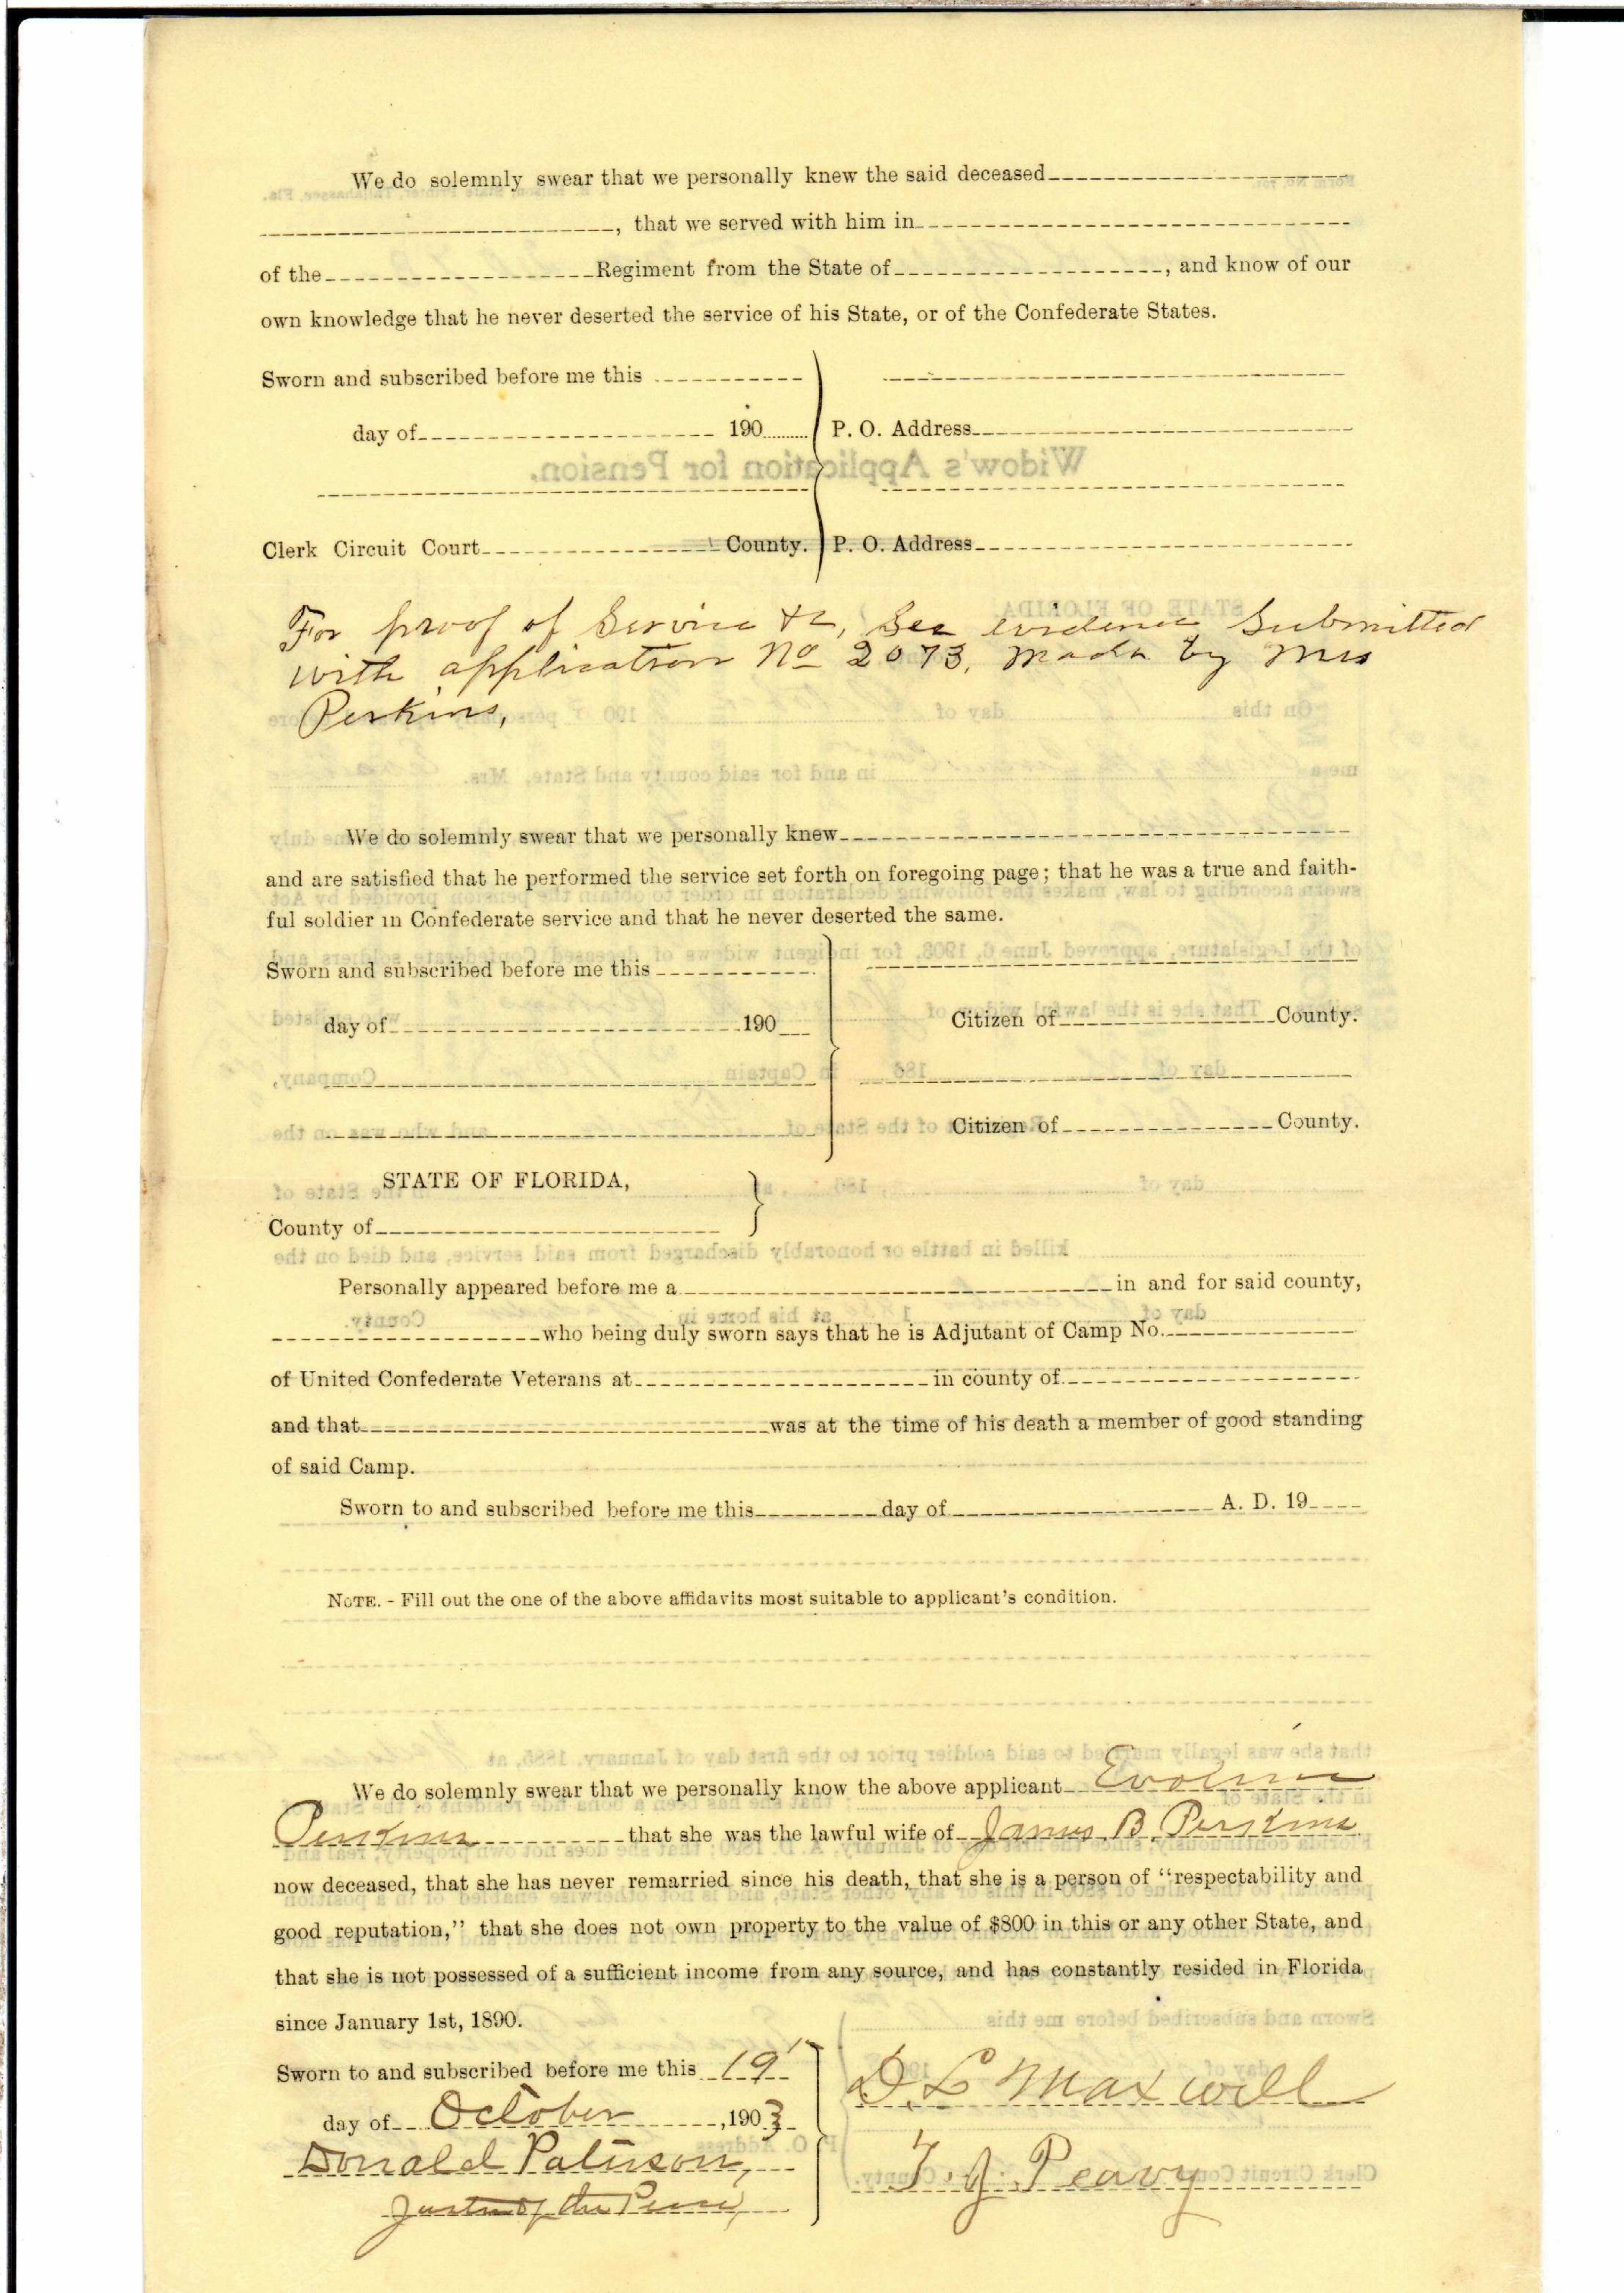 We do solemnly swear that we personally knew the said deceased
, that we served with him in
of the Regiment from the State of , and know of our
own knowledge that he never deserted the service of his State, or of the Confederate States.
Sworn and subscribed before me this
day of 190 P. O. Address
Widow's Application for Pension.
Clerk Circuit Court County. P. O. Address
For proof of Service &c, See evidence Submitted
with application No 2073, made by Mrs
Perkins,
We do solemnly swear that we personally knew
and are satisfied that he performed the service set forth on foregoing page; that he was a true and faith-
ful soldier in Confederate service and that he never deserted the same.
Sworn and subscribed before me this
day of 190 Citizen of County.
Citizen of County.
STATE OF FLORIDA,
County of
Personally appeared before me a in and for said county,
who being duly sworn says that he is Adjutant of Camp No.
of United Confederate Veterans at in county of
and that was at the time of his death a member of good standing
of said Camp.
Sworn to and subscribed before me this day of A. D. 19
NOTE. - Fill out the one of the above affidavits most suitable to applicant's condition.
We do solemnly swear that we personally know the above applicant
Perkins that she was the lawful wife of James B. Perkins
now deceased, that she has never remarried since his death, that she is a person of "respectability and
good reputation," that she does not own property to the value of $800 in this or any other State, and
that she is not possessed of a sufficient income from any source, and has constantly resided in Florida
since January 1st, 1890.
Sworn to and subscribed before me this 19
day of October ,1903
D. L Maxwell
Donald
T. J. Peavy
Justice of the Peace